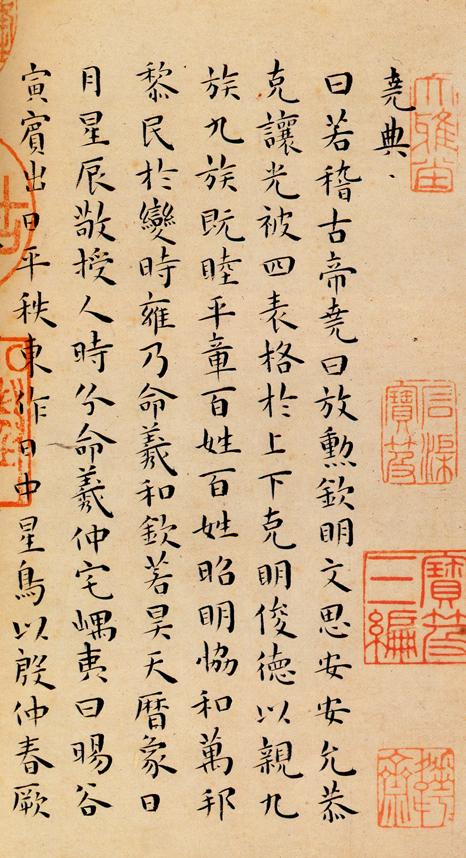 堯典
曰若稽古帝堯曰放勲欽明文思安安允恭
克讓光被四表格於上下克明俊德以親九
族九族既睦平章百姓百姓昭明恊和萬邦
黎民於變時雍乃命羲和欽若昊天曆象日
月星辰敬授人時分命羲仲宅嵎夷曰暘谷
寅賓出日平秩東作日中星鳥以殷仲春厥
石渠寶笈
寶笈三編